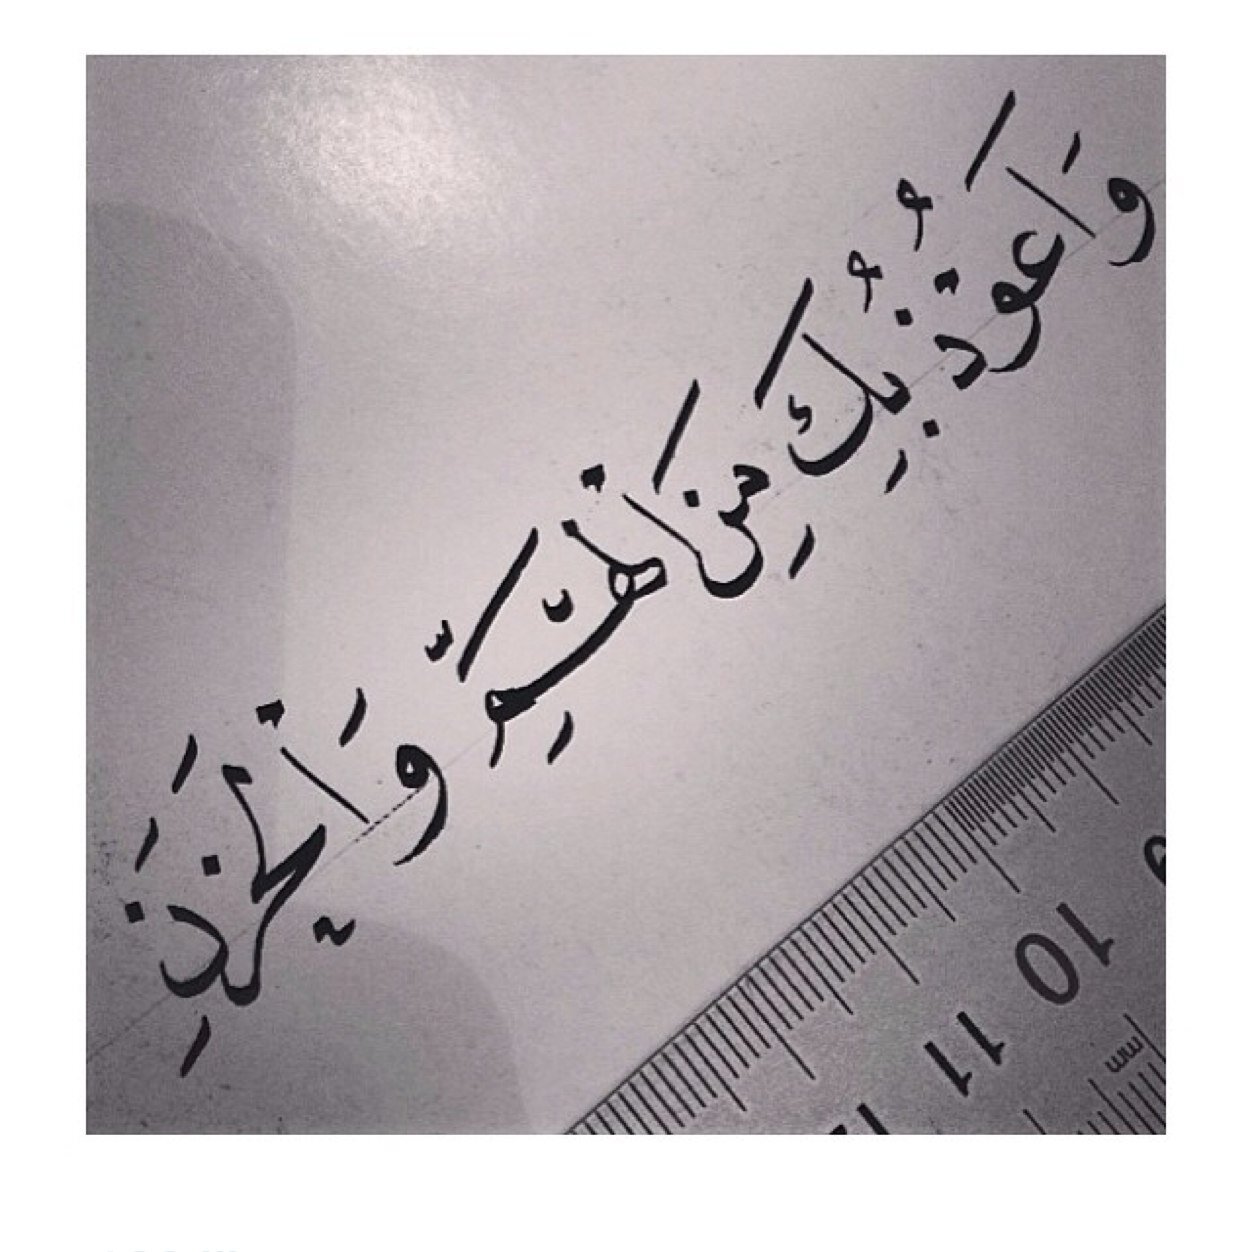 وَاَعُوْذُ بِكَ مِنَ الْهَمِّ وَالْحَزَنِ
9
10
11
mm